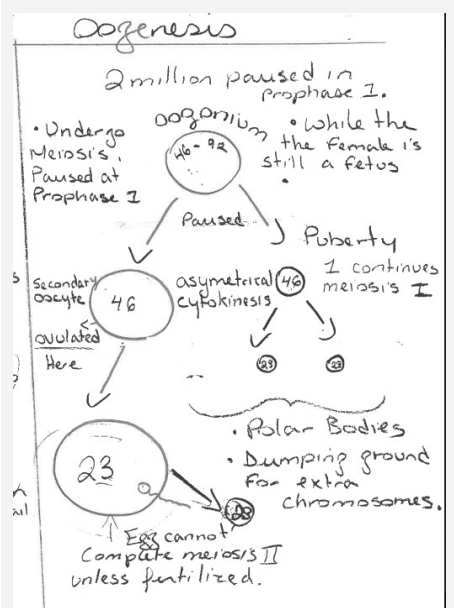 Oogenesis
2 million paused in
Prophase I.
• Undergo
Meiosis,
Paused at
Prophase I
Oogonium
46-92
• While the
the Female is
still a fetus
Paused
Puberty
1 continues
meiosis I
Secondary
oocyte
46
asymetrical
cytokinesis
46
ovulated
Here
23
23
• Polar Bodies
• Dumping ground
For extra
chromosomes.
23
23
Egg cannot
Complete meiosis II
unless fertilized.